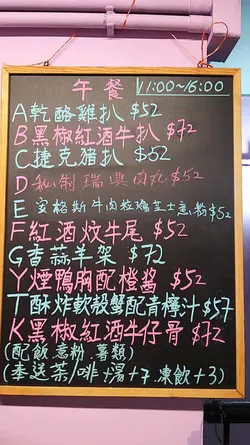 午餐 11:00~16:00
A乾酪雞扒 $52
B黑椒紅酒牛扒 $72
C捷克豬扒 $52
D 私制瑞典肉丸 $52
E 安格斯牛肉粒焗芝士意粉 $52
F紅酒炆牛尾 $52
G香蒜羊架 $72
Y煙鴨胸配橙醬 $52
T酥炸軟殼蟹配青檸汁 $57
K黑椒紅酒牛仔骨 $72
(配飯.意粉.薯類)
(奉送茶/啡.湯+7.凍飲+3)